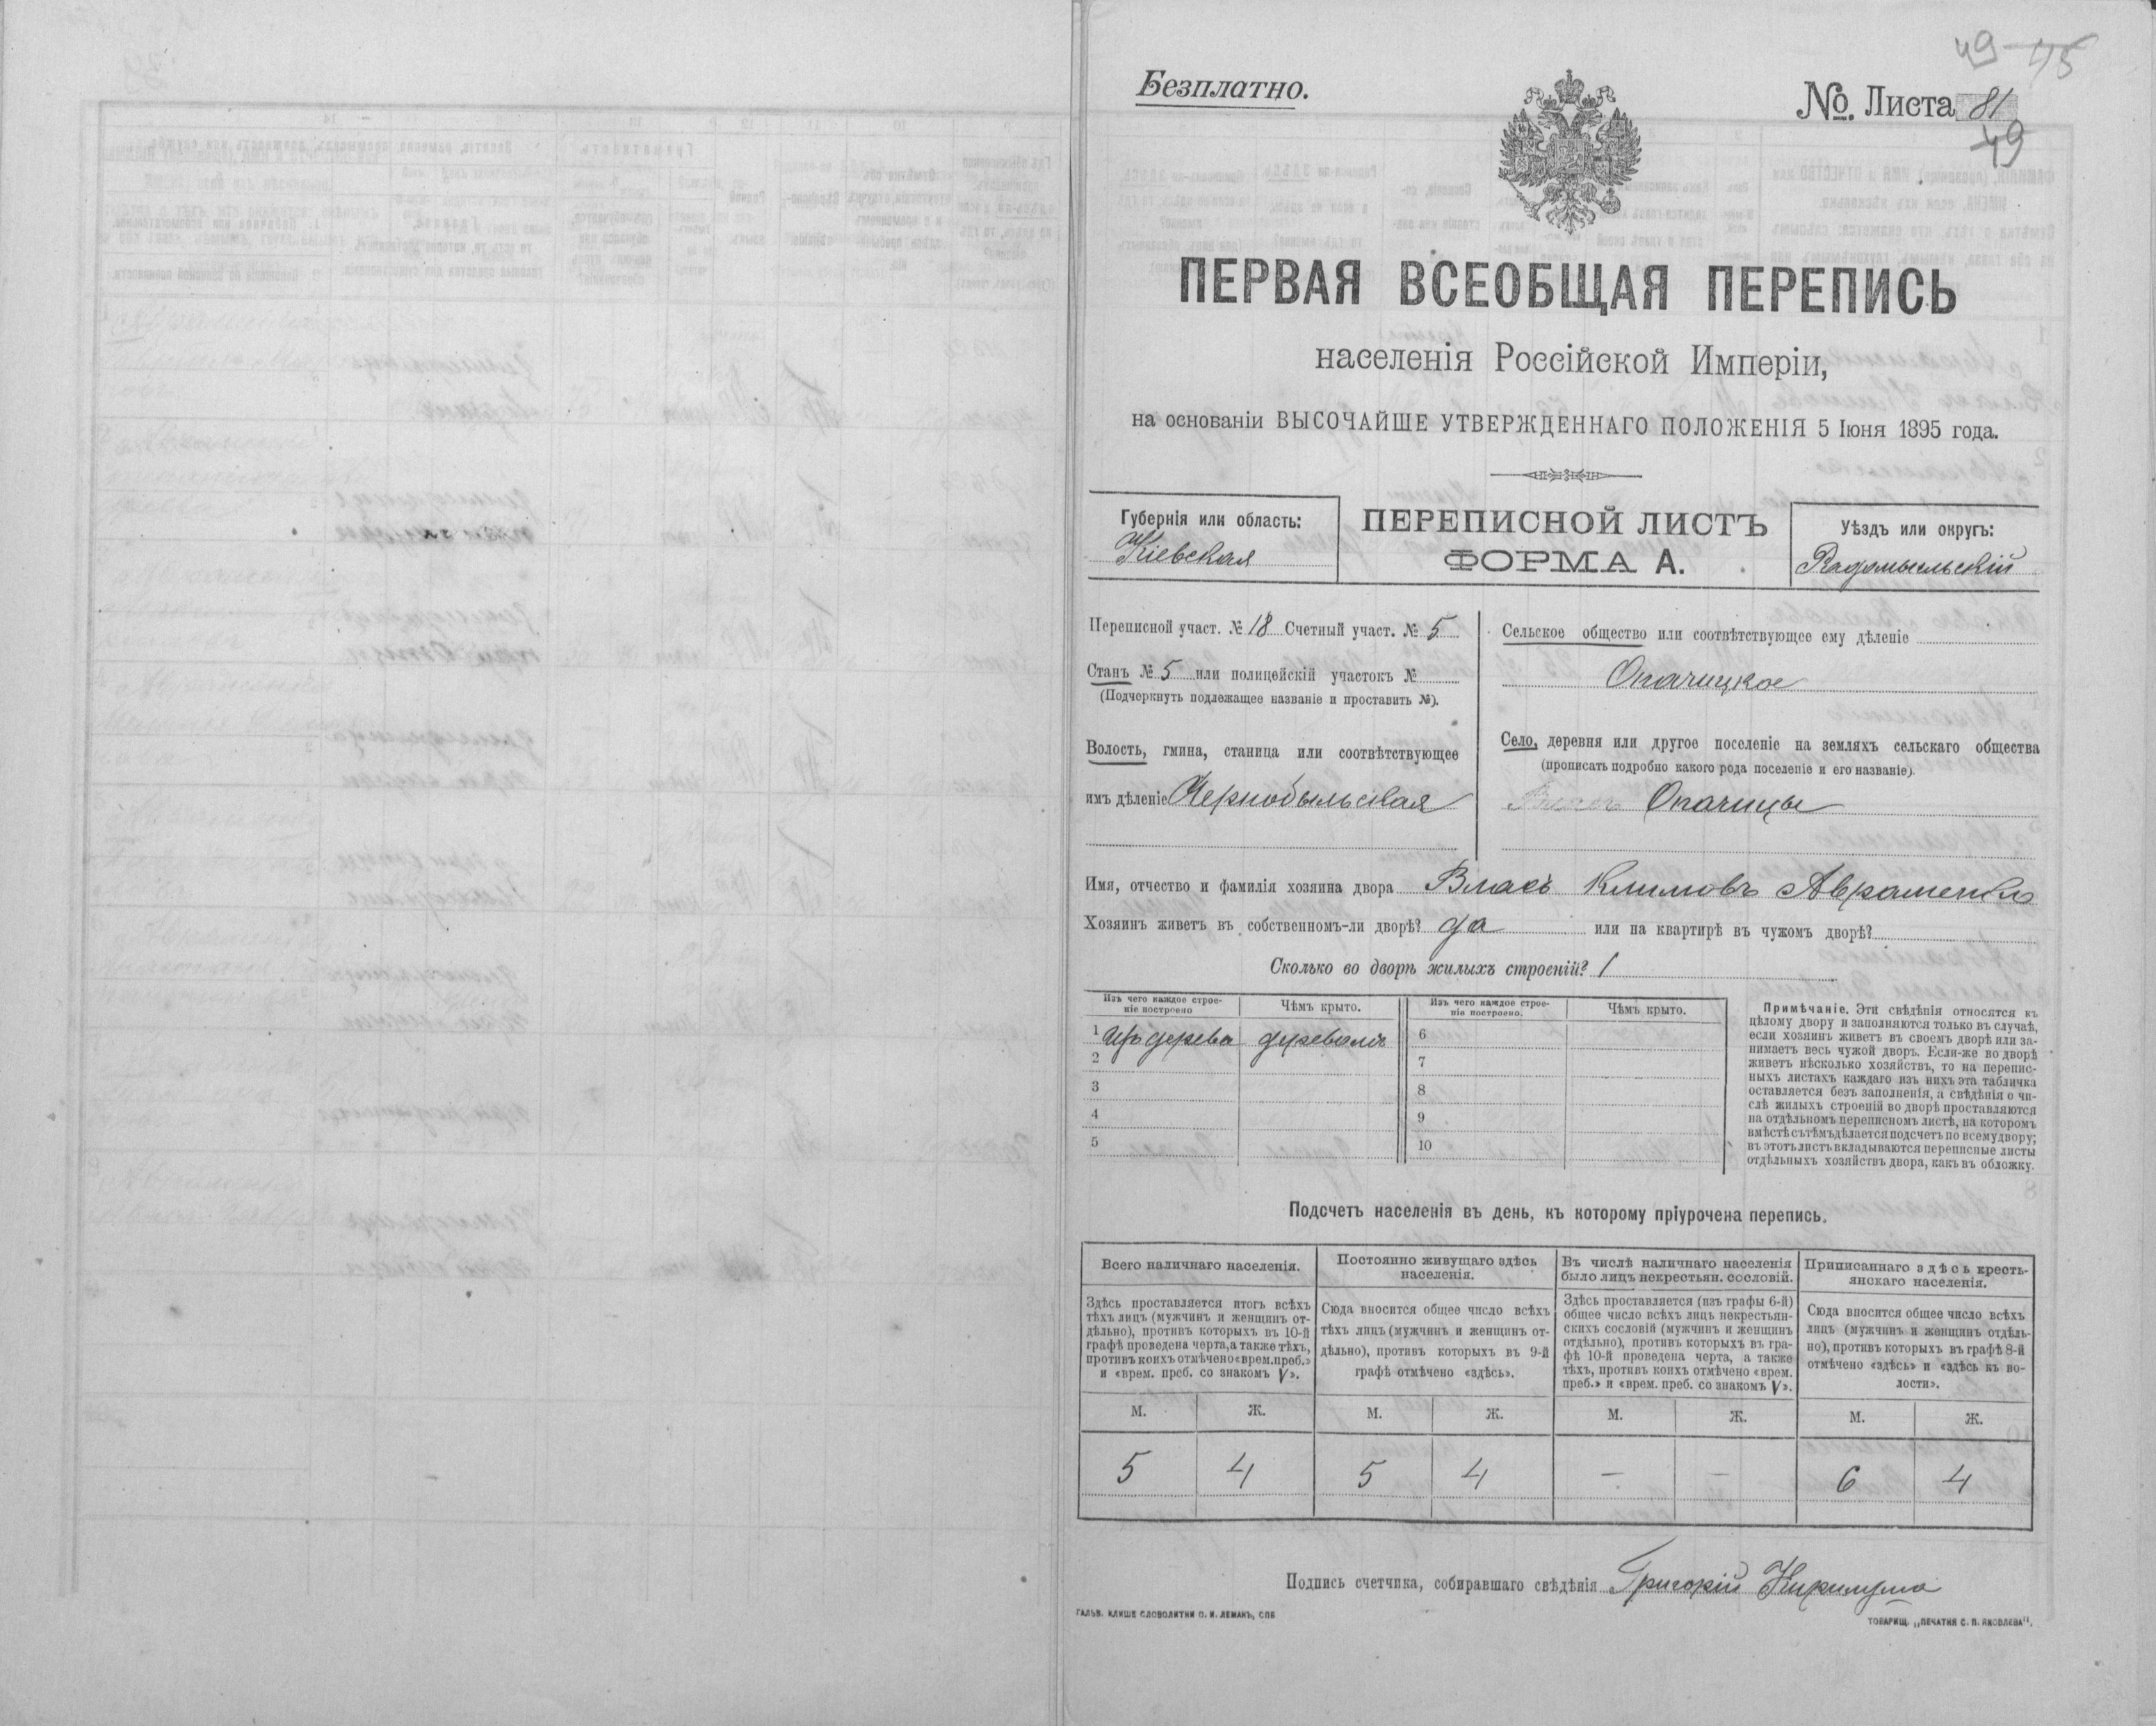 49 45
Безплатно.
№. Листа 81
49
ПЕРВАЯ ВСЕОБЩАЯ ПЕРЕПИСЬ
населенія Россійской Имперіи,
на основаніи ВЫСОЧАЙШЕ УТВЕРЖДЕННАГО ПОЛОЖЕНІЯ 5 Іюня 1895 года.
Губернія или область:
Кіевская
ПЕРЕПИСНОЙ ЛИСТЪ
ФОРМА А.
Уѣздъ или округъ:
Радомысльскій
Переписной участ. № 18 Счетный участ. № 5
Станъ № 5 или полицейскій участокъ №
(Подчеркнуть подлежащее названіе и проставить №).
Волость, гмина, станица или соотвѣтствующее
имъ дѣленіе Чернобыльская
Сельское общество или соотвѣтствующее ему дѣленіе
Опачицкое
Село, деревня или другое поселеніе на земляхъ сельскаго общества
(прописать подробно какого рода поселеніе и его названіе).
Опачицы
Имя, отчество и фамилія хозяина двора Власъ Климовъ Авраменко
Хозяинъ живетъ въ собственномъ-ли дворѣ? да или на квартирѣ въ чужомъ дворѣ?
Сколько во дворѣ жилыхъ строеній? 1
Изъ чего каждое строе-
ніе построено
Чѣмъ крыто.
Изъ чего каждое строе-
ніе построено.
Чѣмъ крыто.
1 Изъ дерева деревомъ 6
2 7
3 8
4 9
5 10
Примѣчаніе. Эти свѣдѣнія относятся къ
цѣлому двору и заполняются только въ случаѣ,
если хозяинъ живетъ въ своемъ дворѣ или за-
нимаетъ весь чужой дворъ. Если-же во дворѣ
живетъ нѣсколько хозяйствъ, то на перепис-
ныхъ листахъ каждаго изъ нихъ эта табличка
оставляется безъ заполненія, а свѣдѣнія о чи-
слѣ жилыхъ строеній во дворѣ проставляются
на отдѣльномъ переписномъ листѣ, на которомъ
вмѣстѣ съ тѣмъ дѣлается подсчетъ по всему двору;
въ этотъ листъ вкладываются переписные листы
отдѣльныхъ хозяйствъ двора, какъ въ обложку.
Подсчетъ населенія въ день, къ которому пріурочена перепись.
Всего наличнаго населенія.
Здѣсь проставляется итогъ всѣхъ
тѣхъ лицъ (мужчинъ и женщинъ от-
дѣльно), противъ которыхъ въ 10-й
графѣ проведена черта, а также тѣхъ,
противъ коихъ отмѣчено «врем. преб.»
и «врем. преб. со знакомъ V».
М. Ж.
5 4
Постоянно живущаго здѣсь
населенія.
Сюда вносится общее число всѣхъ
тѣхъ лицъ (мужчинъ и женщинъ от-
дѣльно), противъ которыхъ въ 9-й
графѣ отмѣчено «здѣсь».
М. Ж.
5 4
Въ числѣ наличнаго населенія
было лицъ некрестьян. сословій.
Здѣсь проставляется (изъ графы 6-й)
общее число всѣхъ лицъ некрестьян-
скихъ сословій (мужчинъ и женщинъ
отдѣльно), противъ которыхъ въ гра-
фѣ 10-й проведена черта, а также
тѣхъ, противъ коихъ отмѣчено «врем.
преб.» и «врем. преб. со знакомъ V».
М. Ж.
— —
Приписаннаго здѣсь кресть-
янскаго населенія.
Сюда вносится общее число всѣхъ
лицъ (мужчинъ и женщинъ отдѣль-
но), противъ которыхъ въ графѣ 8-й
отмѣчено «здѣсь» и «здѣсь къ во-
лости».
М. Ж.
6 4
Подпись счетчика, собиравшаго свѣдѣнія Григорій
ГАЛЬВ. КЛИШЕ СЛОВОЛИТНИ О. И. ЛЕМАНЪ, СПБ
ТОВАРИЩ. „ПЕЧАТНЯ С. П. ЯКОВЛЕВА".